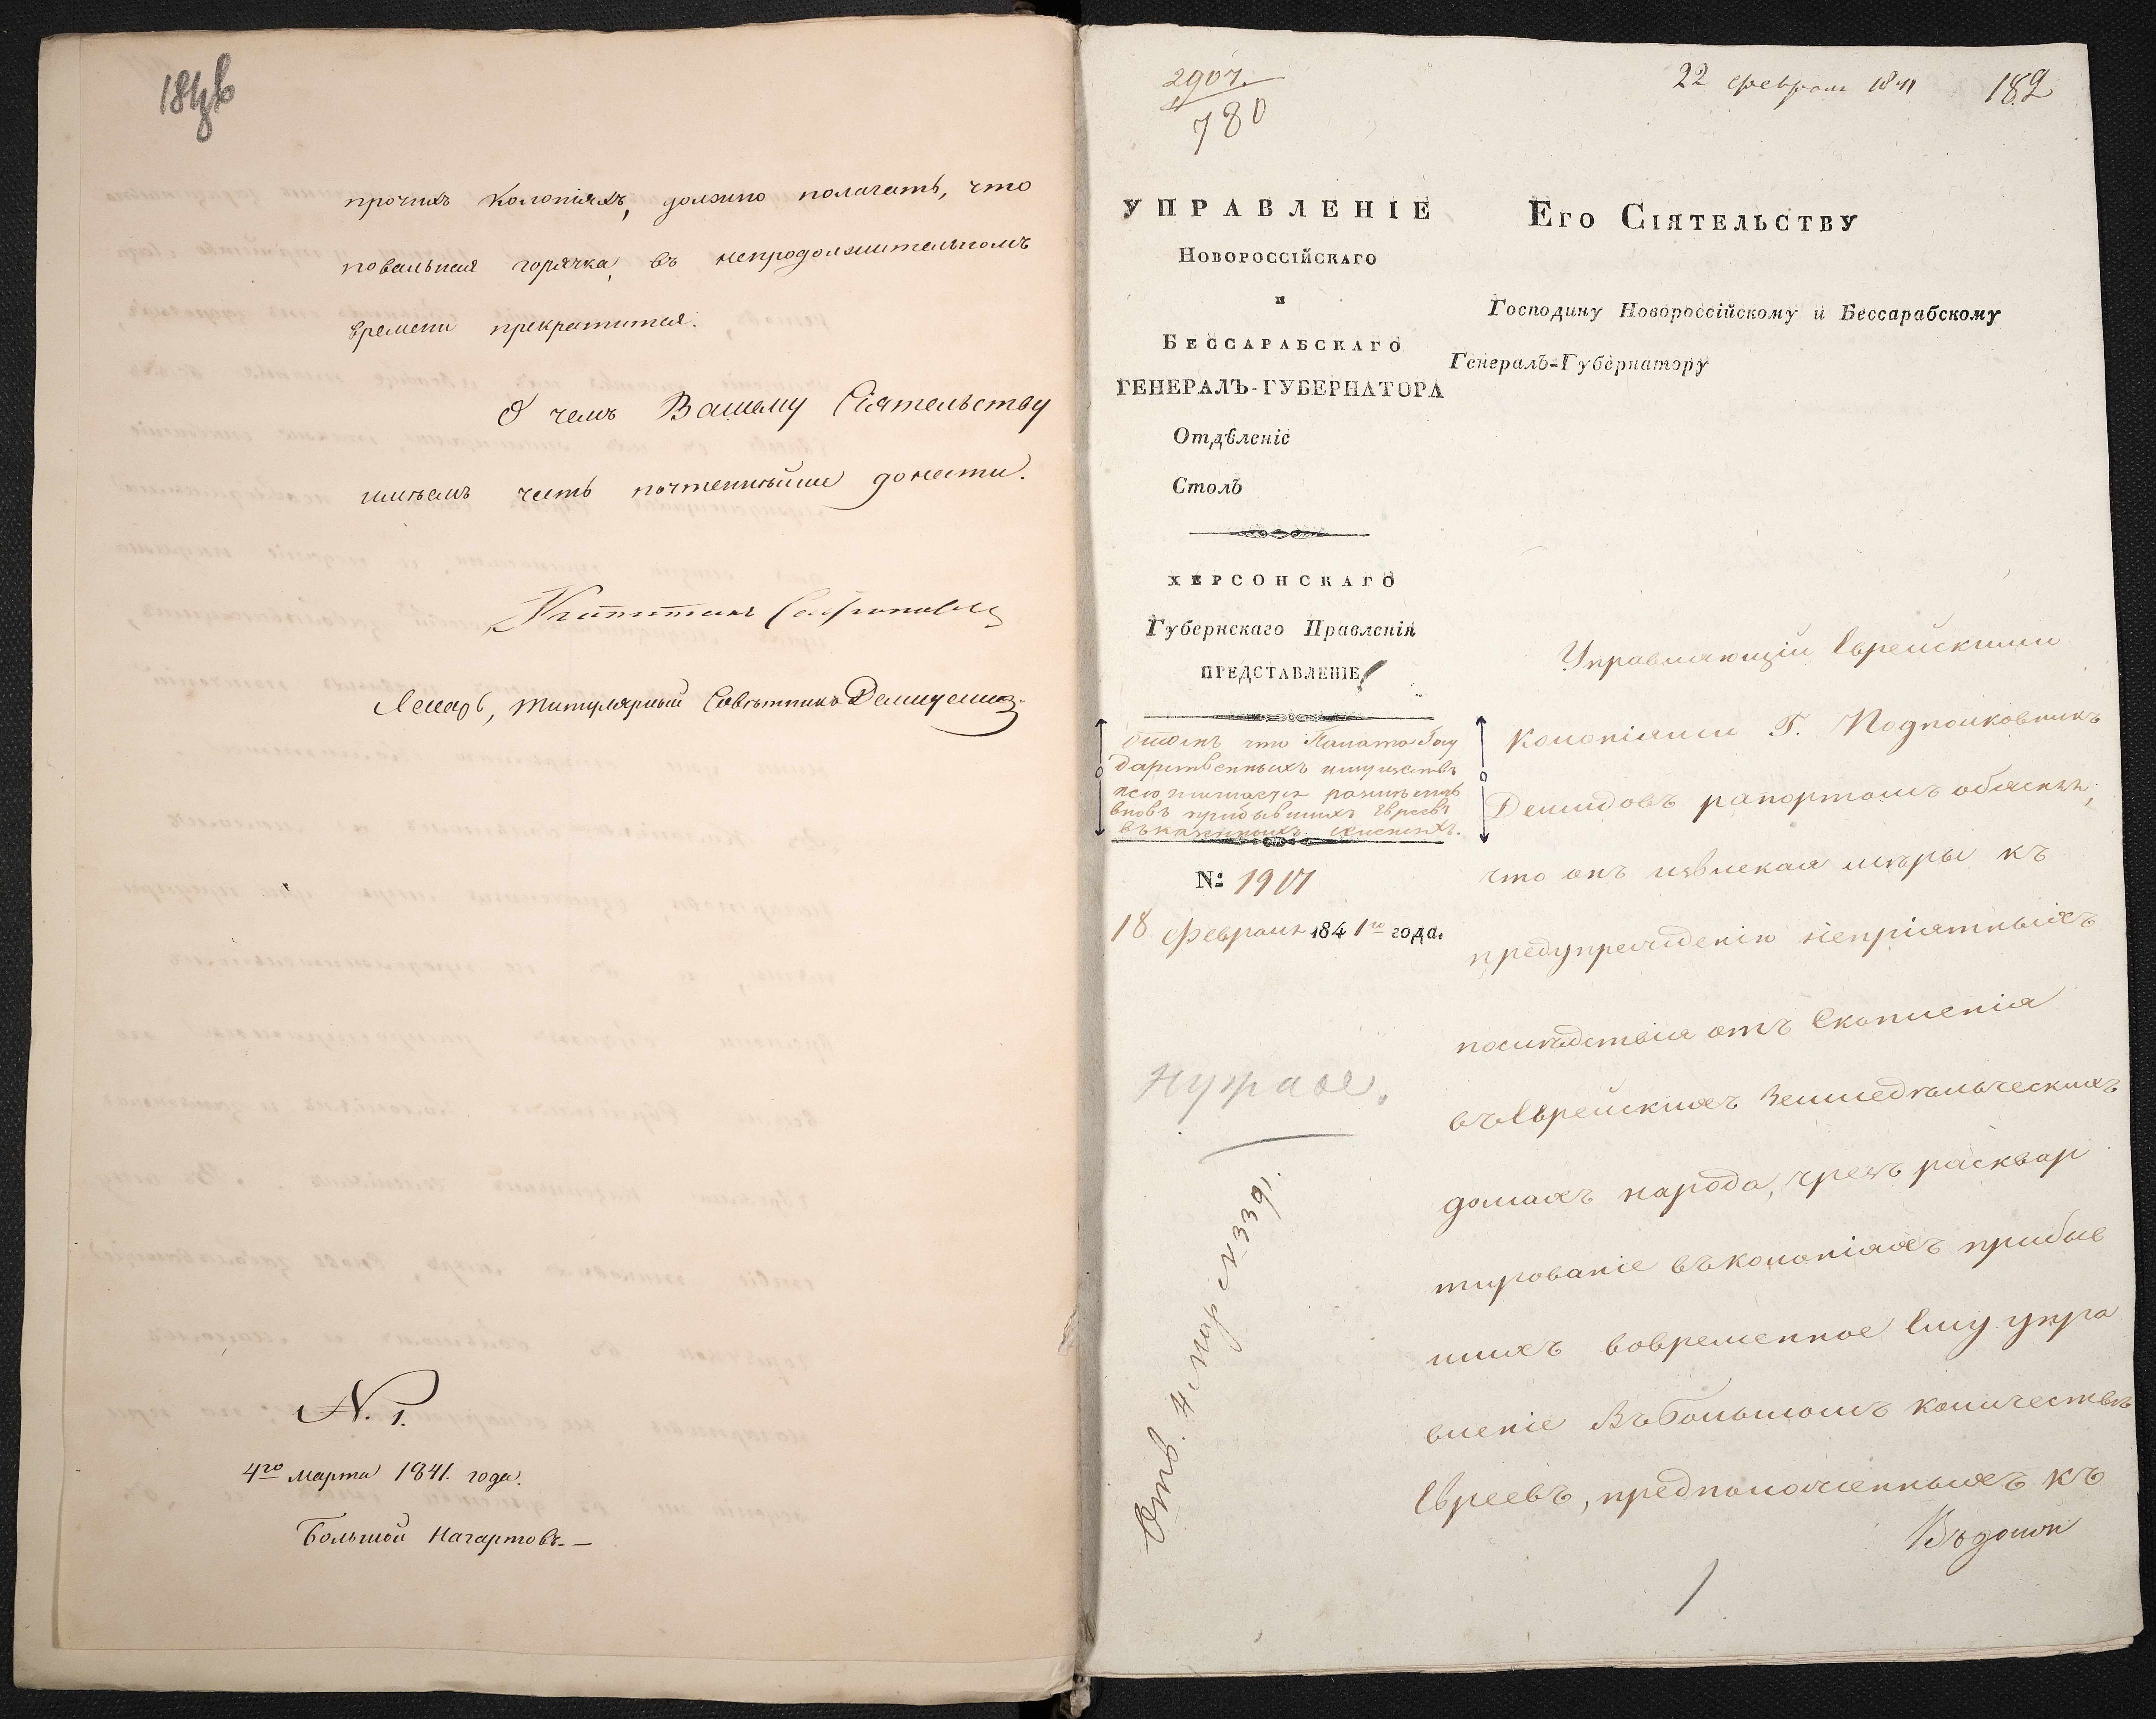 прочихъ Колоніяхъ, должно полагать, что
повальная горячка, въ непродолжительномъ
времени прекратится.
О чемъ Вашему Сіятельству
имѣемъ честь почтеннѣйше донести.
Лекарь, титулярный Совѣтникъ
N. 1.
4го марта 1841. года.
Большой Нагартовъ.
2907.
780
22 февраля 1841
182
УПРАВЛЕНІЕ
Новороссійскаго
и
Бессарабскаго
ГЕНЕРАЛЪ-ГУБЕРНАТОРА
Отдѣленіе
Столъ
ХЕРСОНСКАГО
Губернскаго Правленія
ПРЕДСТАВЛЕНІЕ
что Палата Госу
дарственныхъ имуществъ
размѣстить
вновь прибывшихъ Евреевъ
№ 1917
18 Февраля 1841го года.
Отв. 4 мар N 3391.
Его Сіятельству
Господину Новороссійскому и Бессарабскому
Генералъ-Губернатору
Управляющій Еврейскими
Колоніями Г. Подполковникъ
Демидовъ рапортомъ объяснилъ,
что онъ извлекая мѣры къ
предупрежденію непріятныхъ
послѣдствія отъ Скопленія
въ Еврейскихъ Земледѣльческихъ
домахъ народа, чрезъ расквар
тированіе въ колоніяхъ прибыв
шихъ вовременное Ему упра
вленіе Въ Большомъ количествѣ
Евреевъ, предположенныхъ къ